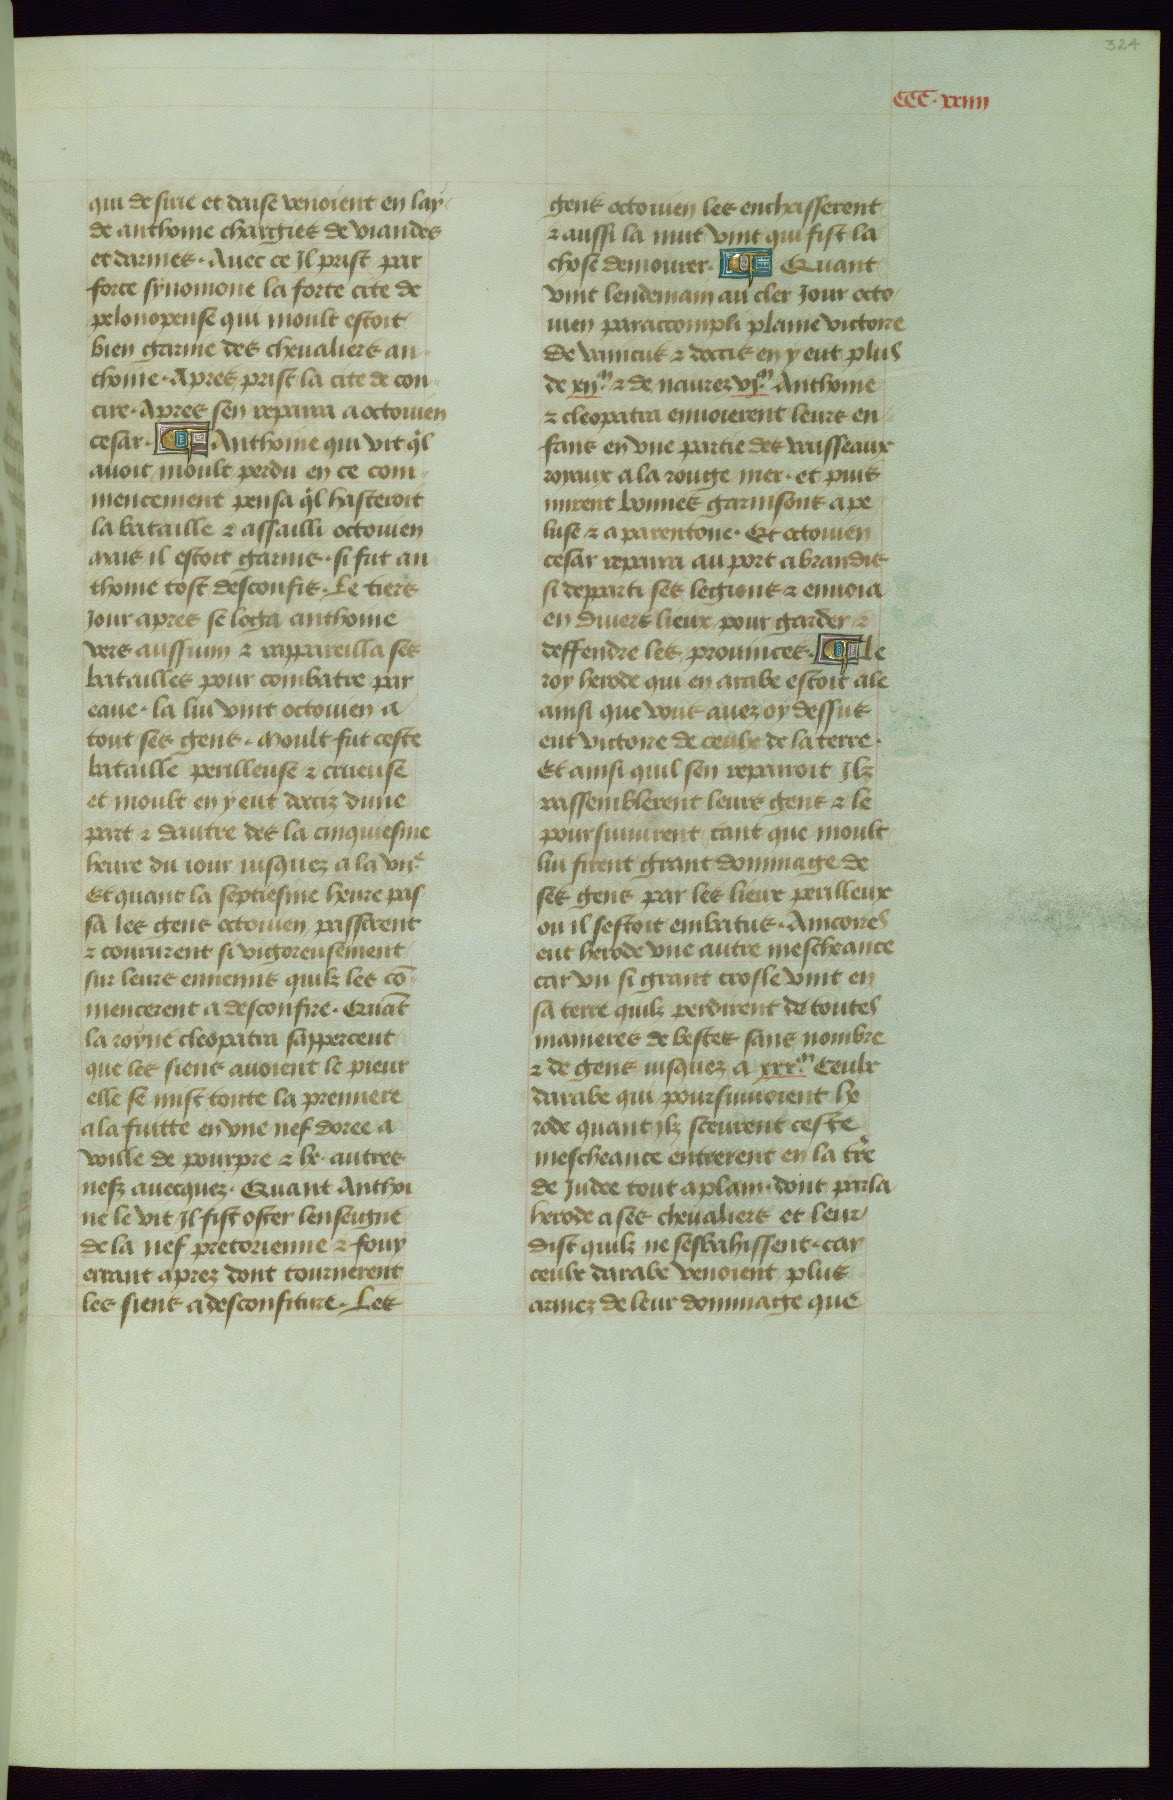 324
CCC. xxiiii
qui de sirie et dasise venoient en lay
de anthoine chargies de viandes
et darmes. Auec ce Jl prist par
force synomone la forte cite de
pelonopense qui moult estoit
bien garnie des cheualiers an
thoine. Apres prist la cite de con
cire. Apres sen repaira a octouien
cesar. Anthoine qui vit ql
auoit moult perdu en ce com
mencement pensa ql hasteroit
la bataille & assailli octouien
mais il estoit garnis. si fut an
thoine tost desconfis. Le tiers
Jour apres se loga anthoine
vers aussium & rappareilla ses
batailles pour combatre par
eaue. la lui vint octouien a
tout ses gens. Moult fut ceste
bataille perilleuse & crueuse
et moult en y eut docciz dune
part & dautre des la cinquiesme
heure du iour iusquez a la viie
Et quant la septiesme heure pas
sa les gens octouien passerent
& coururent si vigoreusement
sur leurs ennemis quilz les co
mencerent a desconfire. Quat
la royne cleopatra sapperceut
que les siens auoient le pieur
elle se mist toute la premiere
a la fuitte en vne nef doree a
voille de pourpre & lx. autres
nefz auecquez. Quant Anthoi
ne le vit Jl fist oster lenseigne
de la nef pretorienne & fouy
errant aprez dont tournerent
les siens a desconfiture. Les
gens octouien les enchasserent
& aussi la nuit vint qui fist la
chose demourer. Quant
vint lendemain au cler Jour octo
uien paraccompli plaine victoire
De vaincus & doccis en y eut plus
de xii.m & de naurez vi.m Anthoine
& cleopatra enuoierent leurs en
fans en vne partie des vaisseaux
royaux a la rouge mer. et puis
mirent bonnes garnisons a pe
luse & a parentone. Et octouien
cesar repaira au port a brandis
si departi ses legions & enuoia
en diuers lieux pour garder &
deffendre les prouinces. Le
roy herode qui en arabe estoit ale
ainsi que vous auez oy dessus
eut victoire de ceulx de la terre.
Et ainsi quil sen repairoit Jlz
rassemblerent leurs gens & le
poursuiuirent tant que moult
lui firent grant dommaige de
ses gens par les lieux perilleux
ou il sestoit embatus. Aincores
eut herode vne autre mescheance
car vn si grant crosle vint en
sa terre quilz perdirent de toutes
manieres de bestes sans nombre
& de gens iusquez a xxx.m Ceulx
darabe qui poursuiuoient he
rode quant ilz sceurent ceste
mescheance entrerent en la tre
de Judee tout a plain. dont parla
herode a ses cheualiers et leur
dist quilz ne sesbahissent. car
ceulx darabe venoient plus
armez de leur dommaige que